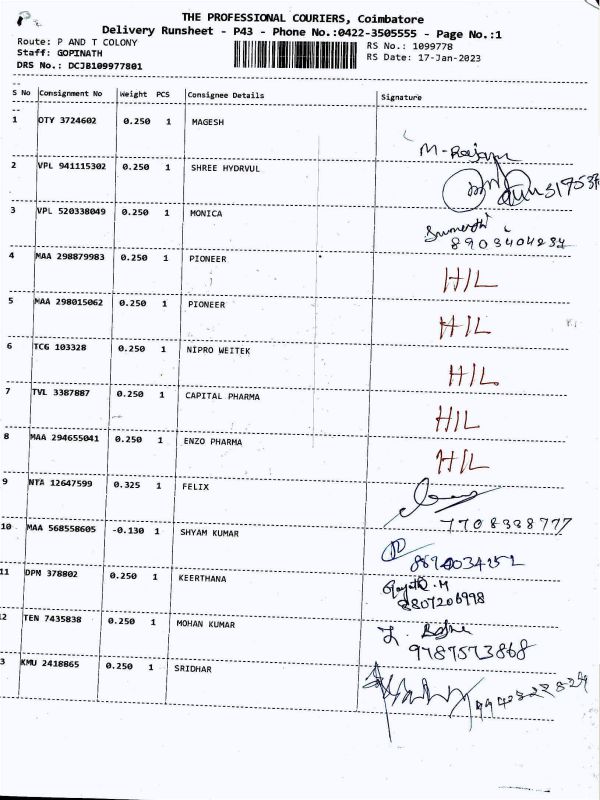 THE PROFESSIONAL COURIERS, Coimbatore
Delivery Runsheet - P43 - Phone No.:0422-3505555 - Page No.:1
Route: P AND T COLONY
RS No.: 1099778
Staff: GOPINATH
RS Date: 17-Jan-2023
DRS No.: DCJB109977801
S No Consignment No Weight PCS Consignee Details Signature
1 OTY 3724602 0.250 1 MAGESH
2 VPL 941115302 0.250 1 SHREE HYDRVUL
3 VPL 520338049 0.250 1 MONICA 8903404234
4 MAA 298879983 0.250 1 PIONEER H/L
5 MAA 298015062 0.250 1 PIONEER H/L
6 TCG 103328 0.250 1 NIPRO WEITEK H/L
7 TVL 3387887 0.250 1 CAPITAL PHARMA H/L
8 MAA 294655041 0.250 1 ENZO PHARMA H/L
9 NTA 12647599 0.325 1 FELIX 7708388777
10 MAA 568558605 -0.130 1 SHYAM KUMAR
11 DPM 378802 0.250 1 KEERTHANA 8807206998
2 TEN 7435838 0.250 1 MOHAN KUMAR 9787573868
3 KMU 2418865 0.250 1 SRIDHAR